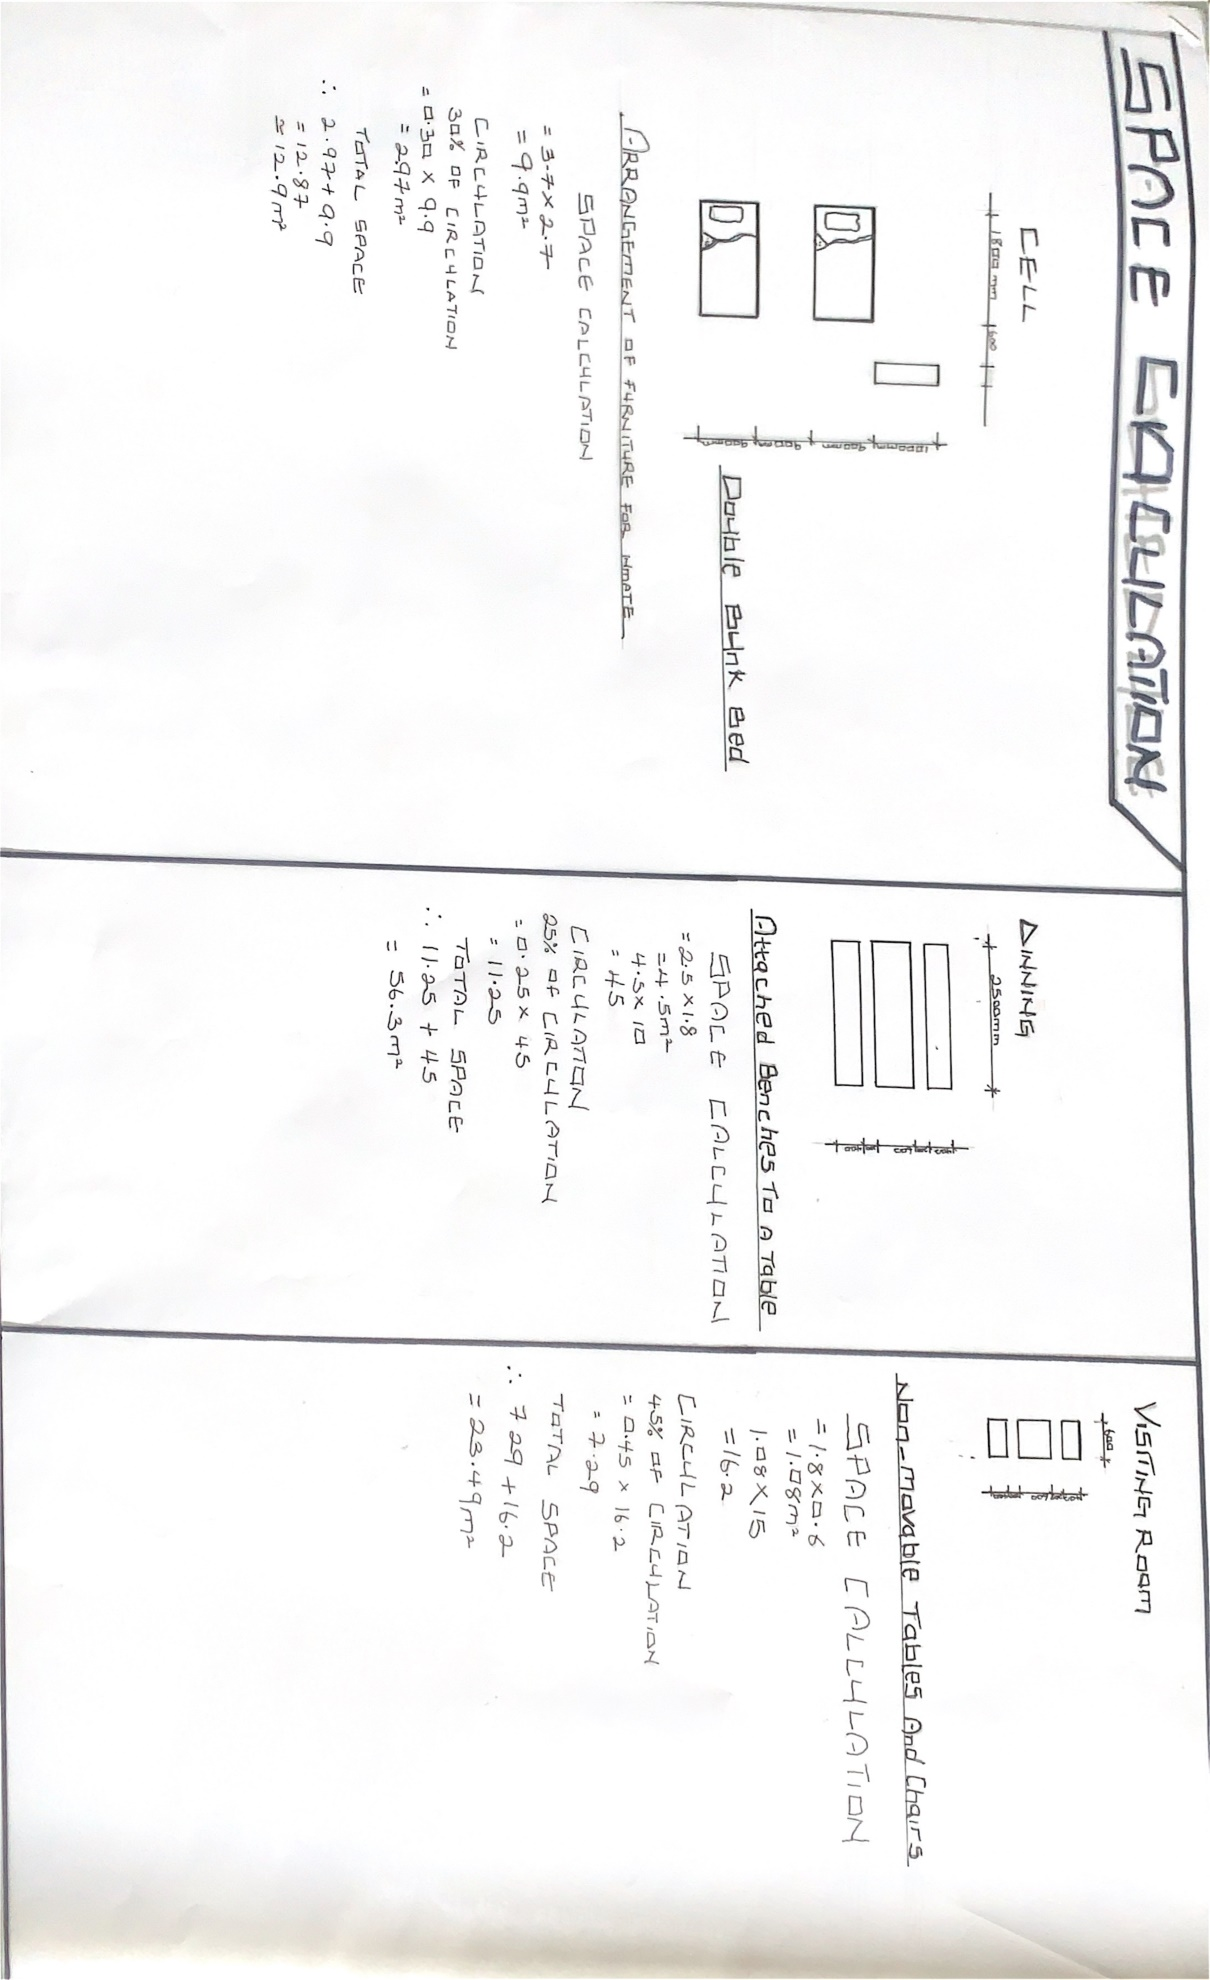 SPACE CALCULATION
CELL
1800mm
600
1000mm
900mm
900
900mm
Double Bunk Bed
ARRANGEMENT OF FURNITURE FOR INMATE
SPACE CALCULATION
= 3.7 x 2.7
= 9.9m²
CIRCULATION
30% OF CIRCULATION
= 0.30 x 9.9
= 2.97m²
TOTAL SPACE
∴ 2.97 + 9.9
= 12.87
≃ 12.9m²
DINNING
2500mm
Attached Benches To A Table
SPACE CALCULATION
= 2.5 x 1.8
= 4.5m²
4.5 x 10
= 45
CIRCULATION
25% OF CIRCULATION
= 0.25 x 45
= 11.25
TOTAL SPACE
∴ 11.25 + 45
= 56.3m²
VISITING ROOM
600
Non-movable Tables And Chairs
SPACE CALCULATION
= 1.8 x 0.6
= 1.08m²
1.08 x 15
= 16.2
CIRCULATION
45% OF CIRCULATION
= 0.45 x 16.2
= 7.29
TOTAL SPACE
∴ 7.29 + 16.2
= 23.49m²